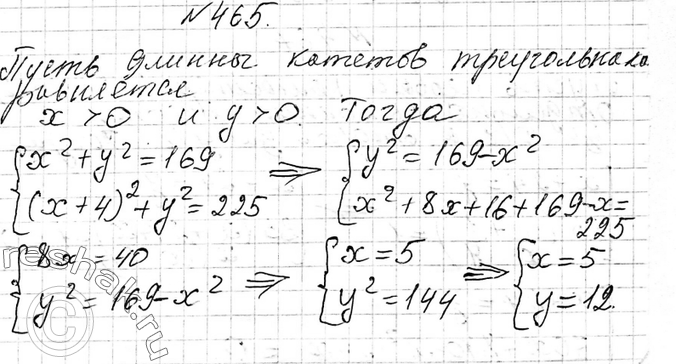 №465.
Пусть длинны катетов треугольнака
равняется
x > 0 и y > 0. Тогда
{x² + y² = 169 ⇒ {y² = 169 - x²
{(x + 4)² + y² = 225 {x² + 8x + 16 + 169 - x =
225
{8x = 40 ⇒ {x = 5 ⇒ {x = 5
{y² = 169 - x² {y² = 144 {y = 12.
©reshak.ru